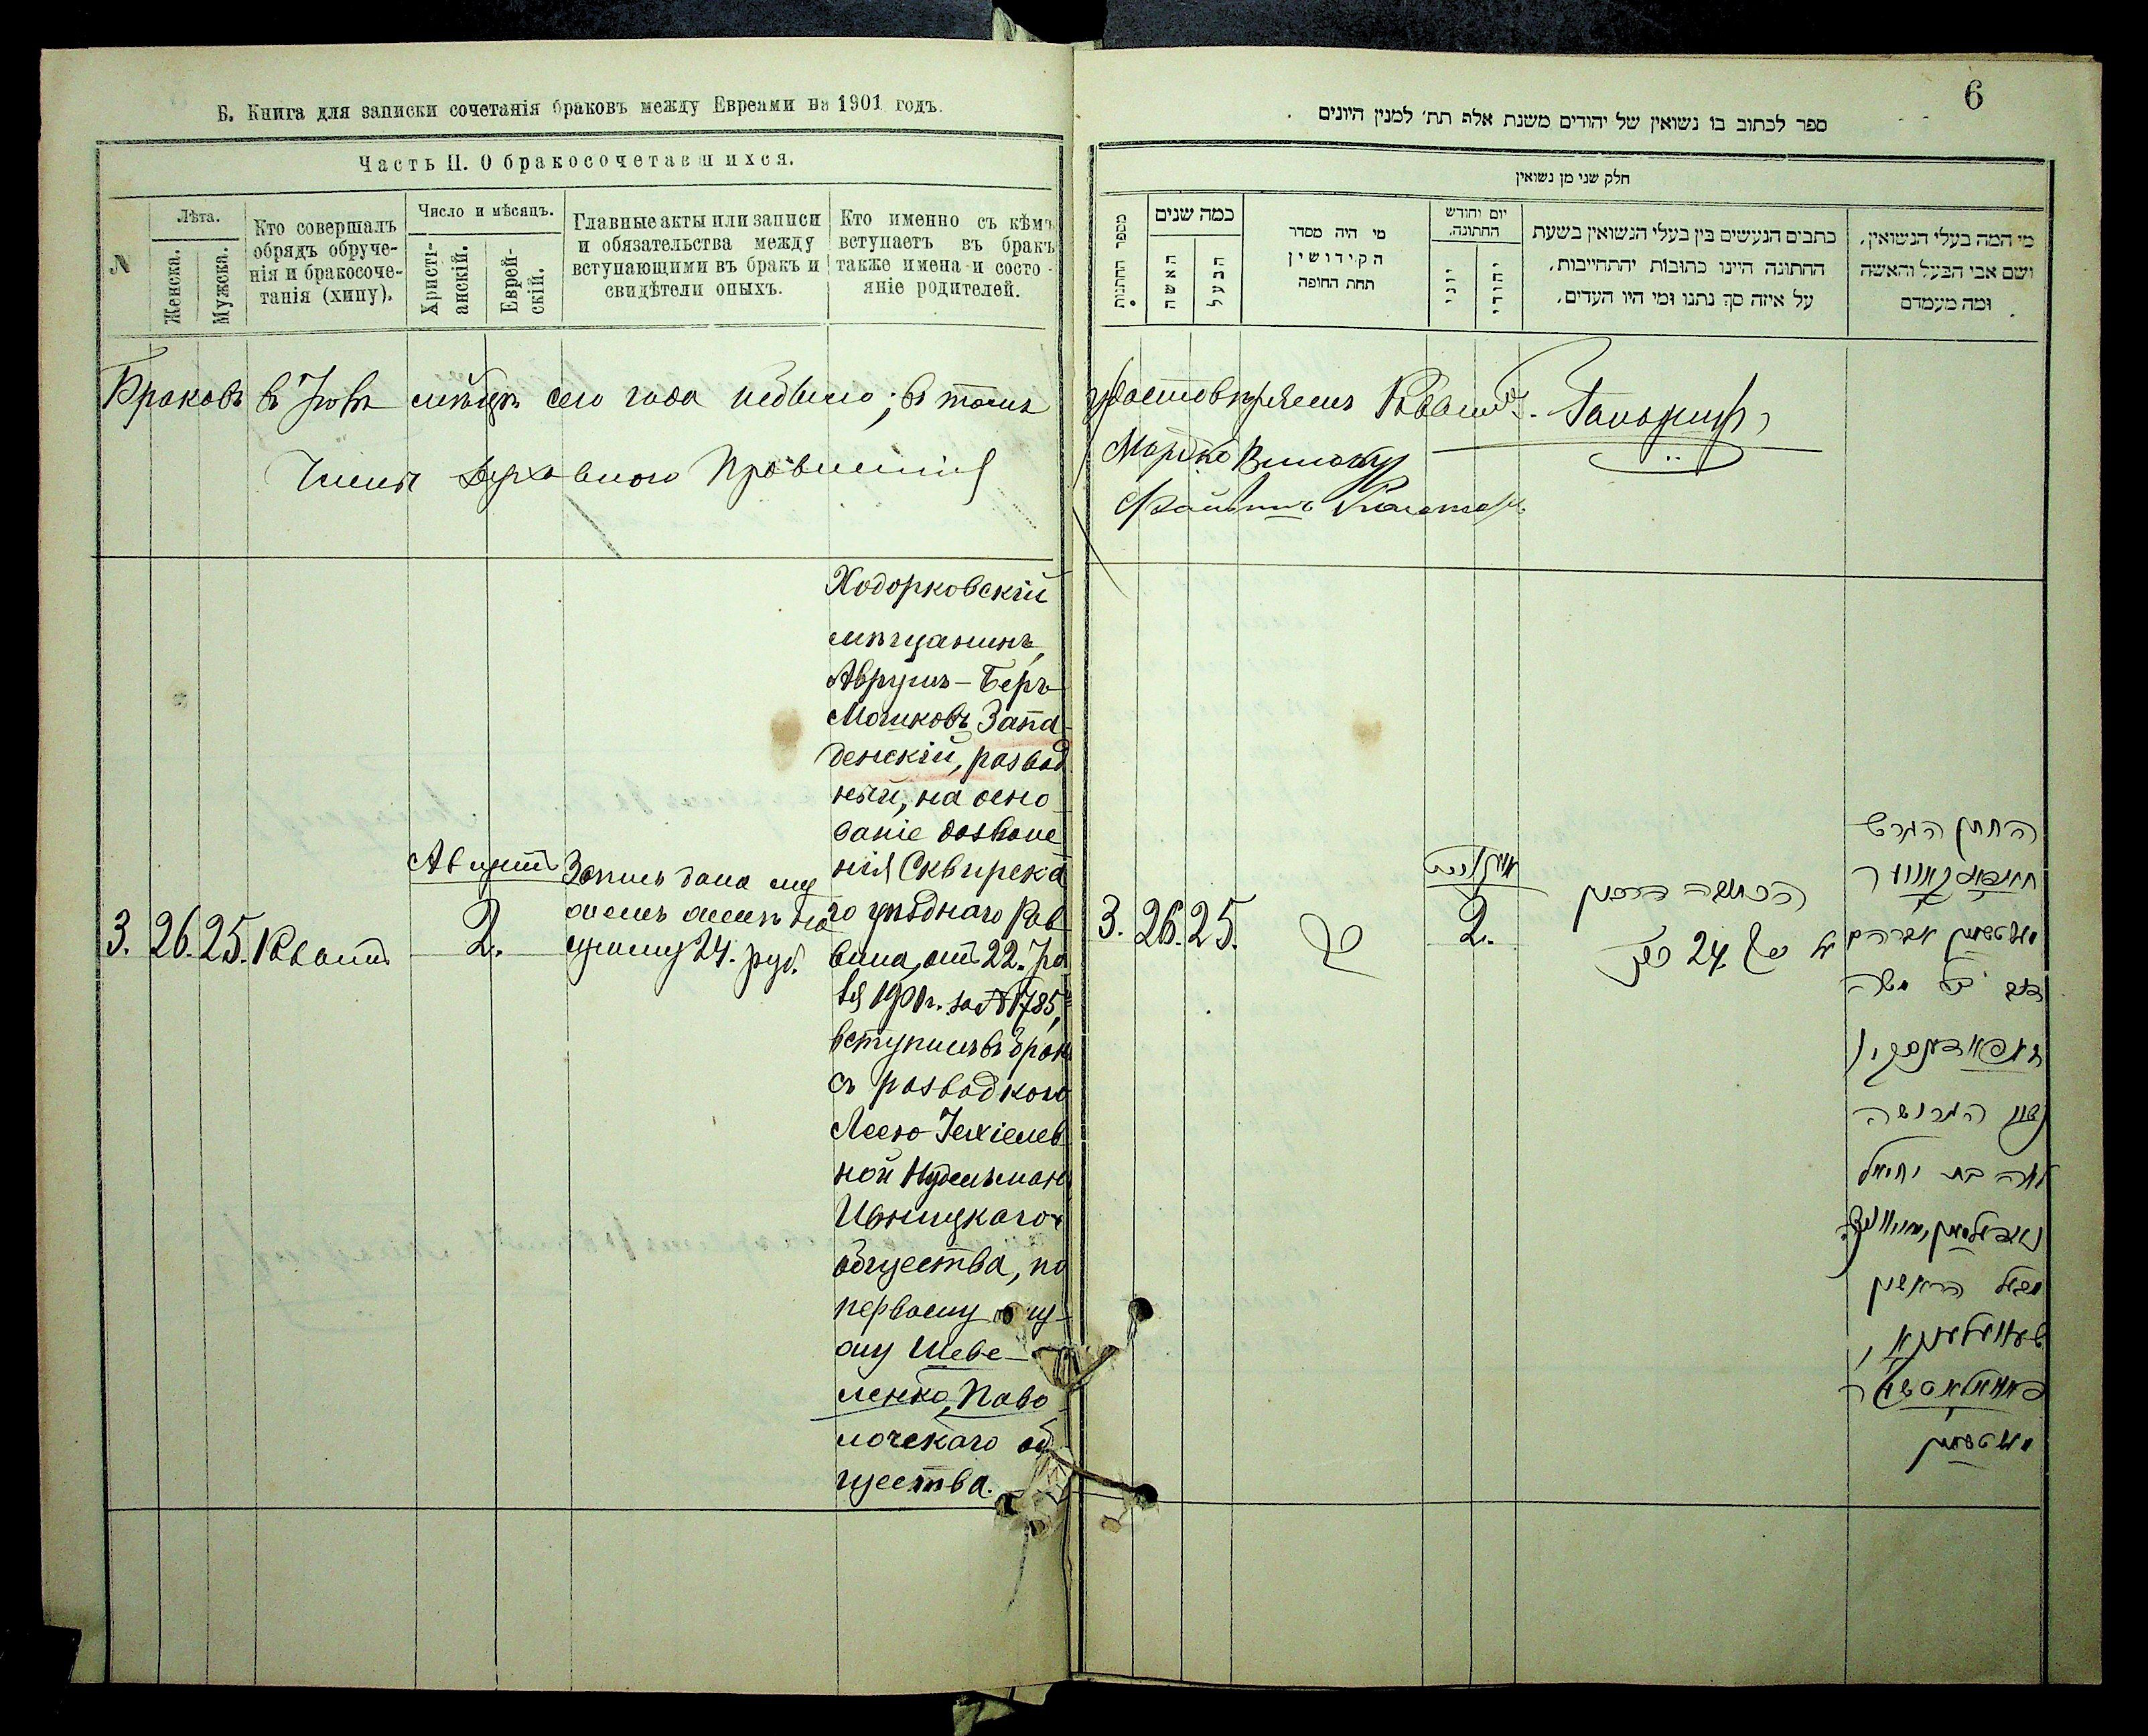 Б. Книга для записки сочетанія браковъ между Евреами на 1901 годъ.
Часть II. О бракосочетавшихся.
№
Лѣта.
Женска.
Мужска.
Кто совершалъ
обрядъ обруче-
нія и бракосоче-
танія (хипу).
Число и мѣсяцъ.
Христі-
анскій.
Еврей-
скій.
Главные акты или записи
и обязательства между
вступающими въ бракъ и
свидѣтели оныхъ.
Кто именно съ кѣмъ
вступаетъ въ бракъ
также имена и состо-
яніе родителей.
Браковъ въ Іюлѣ мѣсяцѣ сего года не было; въ томъ
Члены Духовного Правленія
3. 26. 25. Раввинъ
Августъ
2.
Запись дана му
жемъ женѣ на
сумму 24. руб.
Ходорковскій
мѣщанинъ,
Аврумъ-Беръ
Мошковъ Запа-
денскій, развод
ный, на осно
ваніе дозволе
нія Сквирска
го уѣзднаго Рав
вина, отъ 22. Iю
ля 1901 г. за № 1785,
вступилъ въ бракъ
съ разводкою
Леею Iехіелев
ной Нудельманъ
Ивницкаго
общества, по
первому му-
жу Шеве-
ленко, Паво
лочскаго об
щества.
6
ספר לכתוב בו נשואין של יהודים משנת אלף תת׳ למנין היונים
חלק שני מן נשואין
מספר החתנות
כמה שנים
האשה
הבעל
מי היה מסדר
הקידושין
תחת החופה
יום וחודש
החתונה.
יוני
יהודי
כתבים הנעשים בין בעלי הנשואין בשעת
החתונה היינו כתובות יהתחייבות,
על איזה סך נתנו ומי היו העדים,
מי המה בעלי הנשואין,
ושם אבי הבעל והאשה
ומה מעמדם
удостовѣряемъ Раввинъ
3. 26. 25.
אויגוסט
2.
הכתובה
על סך 24
החתן הגרוש
מעשטשאנין אברהם
בער בן משה
זאפאדענסקי
עם הגרושה
לאה בת יחיאל
נודעלמאן
מבעל הראשון
שעוועלענקא,
מעשטשאנין